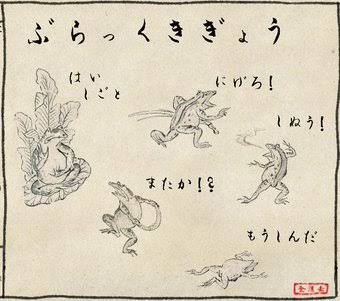 ぶらっくきぎょう
はい
しごと
にげろ！
しぬう！
またか！？
もうしんだ